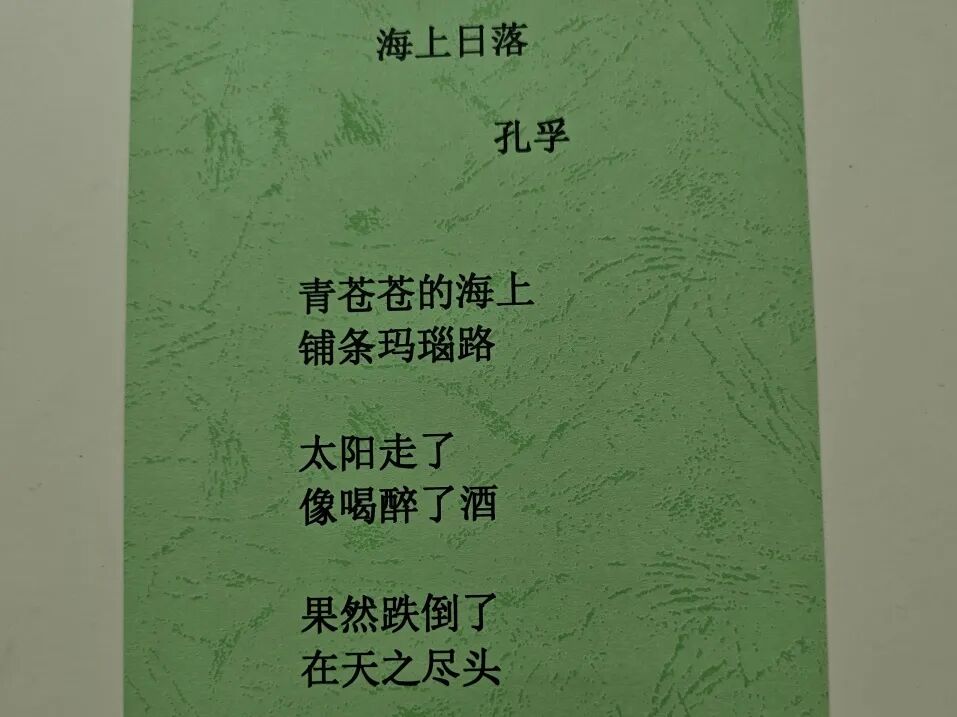 海上日落
孔孚
青苍苍的海上
铺条玛瑙路
太阳走了
像喝醉了酒
果然跌倒了
在天之尽头